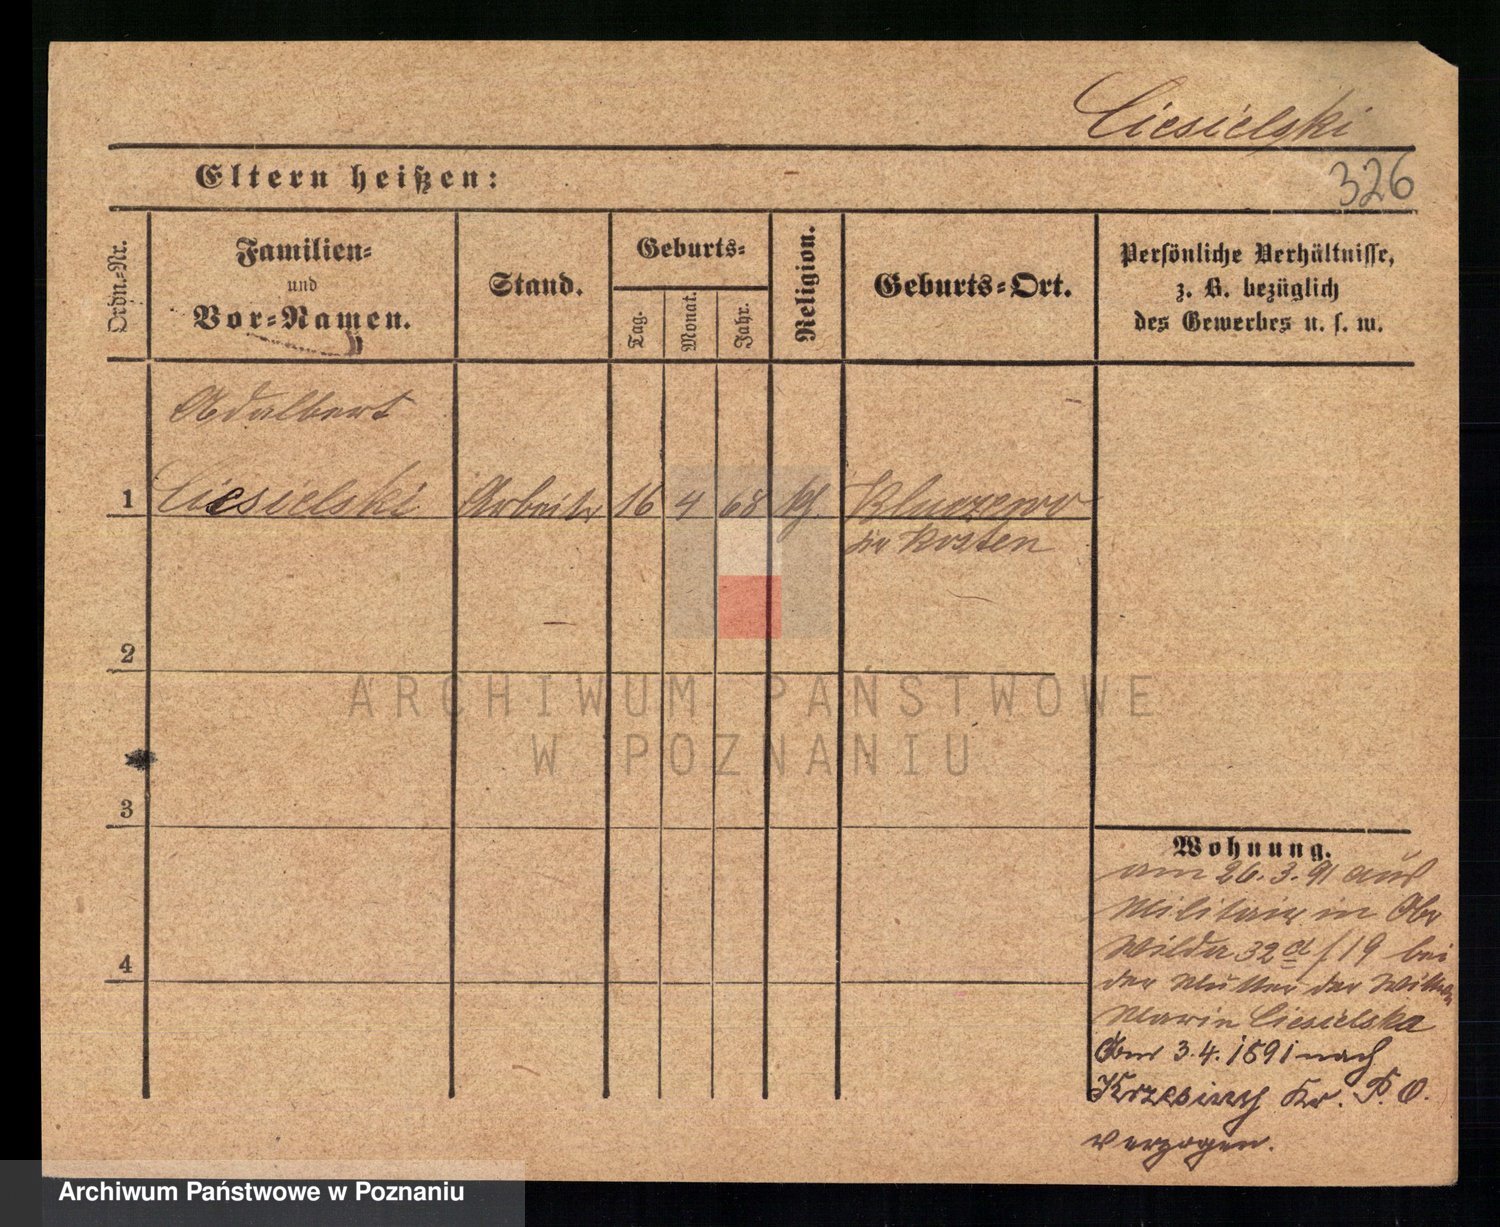 Ciesielski
Eltern heißen:
326
Ordn.-Nr.
Familien-
und
Vor-Namen.
Stand.
Geburts-
Tag.
Monat.
Jahr.
Religion.
Geburts-Ort.
Persönliche Verhältnisse,
z. B. bezüglich
des Gewerbes u. s. w.
Adalbert
1 Ciesielski Arbeiter 16 4 68 kth Kluczewo
Kosten
2
3
4
Wohnung.
am 26.3.91 aus
Militair in Ober
Wilda 32 a / 19 bei
der Mutter der Wittwe
Marie Ciesielska
Am 3.4.1891 nach
Kr. P. O.
verzogen.
ARCHIWUM PAŃSTWOWE
W POZNANIU
Archiwum Państwowe w Poznaniu